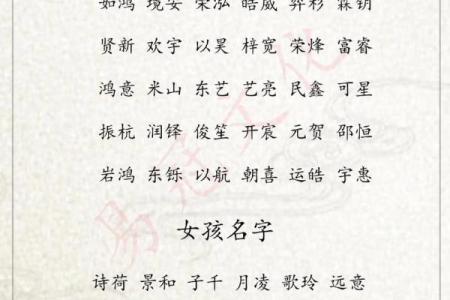 如鸿 境安 荣泓 皓威 弈衫 霖钥
贤新 欢宇 以昊 梓宽 荣烽 富睿
鸿意 米山 东艺 艺亮 民鑫 可星
振杭 润铎 俊笙 开宸 元贺 邵恒
岩鸿 东铄 以航 朝喜 运皓 宇惠
易冠文化
女孩名字
诗荷 景和 子千 月凌 歌玲 远意